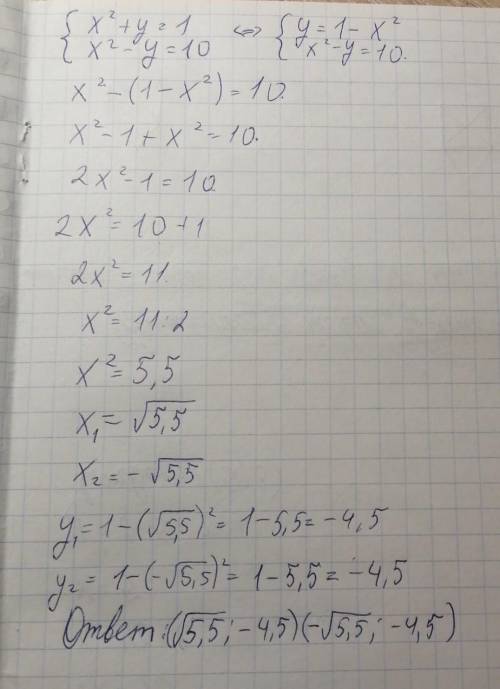 { x² + y = 1 ⇔ { y = 1 - x²
{ x² - y = 10 { x² - y = 10.
x² - (1 - x²) = 10.
x² - 1 + x² = 10.
2x² - 1 = 10
2x² = 10 + 1
2x² = 11.
x² = 11 : 2
x² = 5,5
x₁ = √5,5
x₂ = - √5,5
y₁ = 1 - (√5,5)² = 1 - 5,5 = -4,5
y₂ = 1 - (-√5,5)² = 1 - 5,5 = -4,5
Ответ: (√5,5; -4,5) (-√5,5; -4,5)